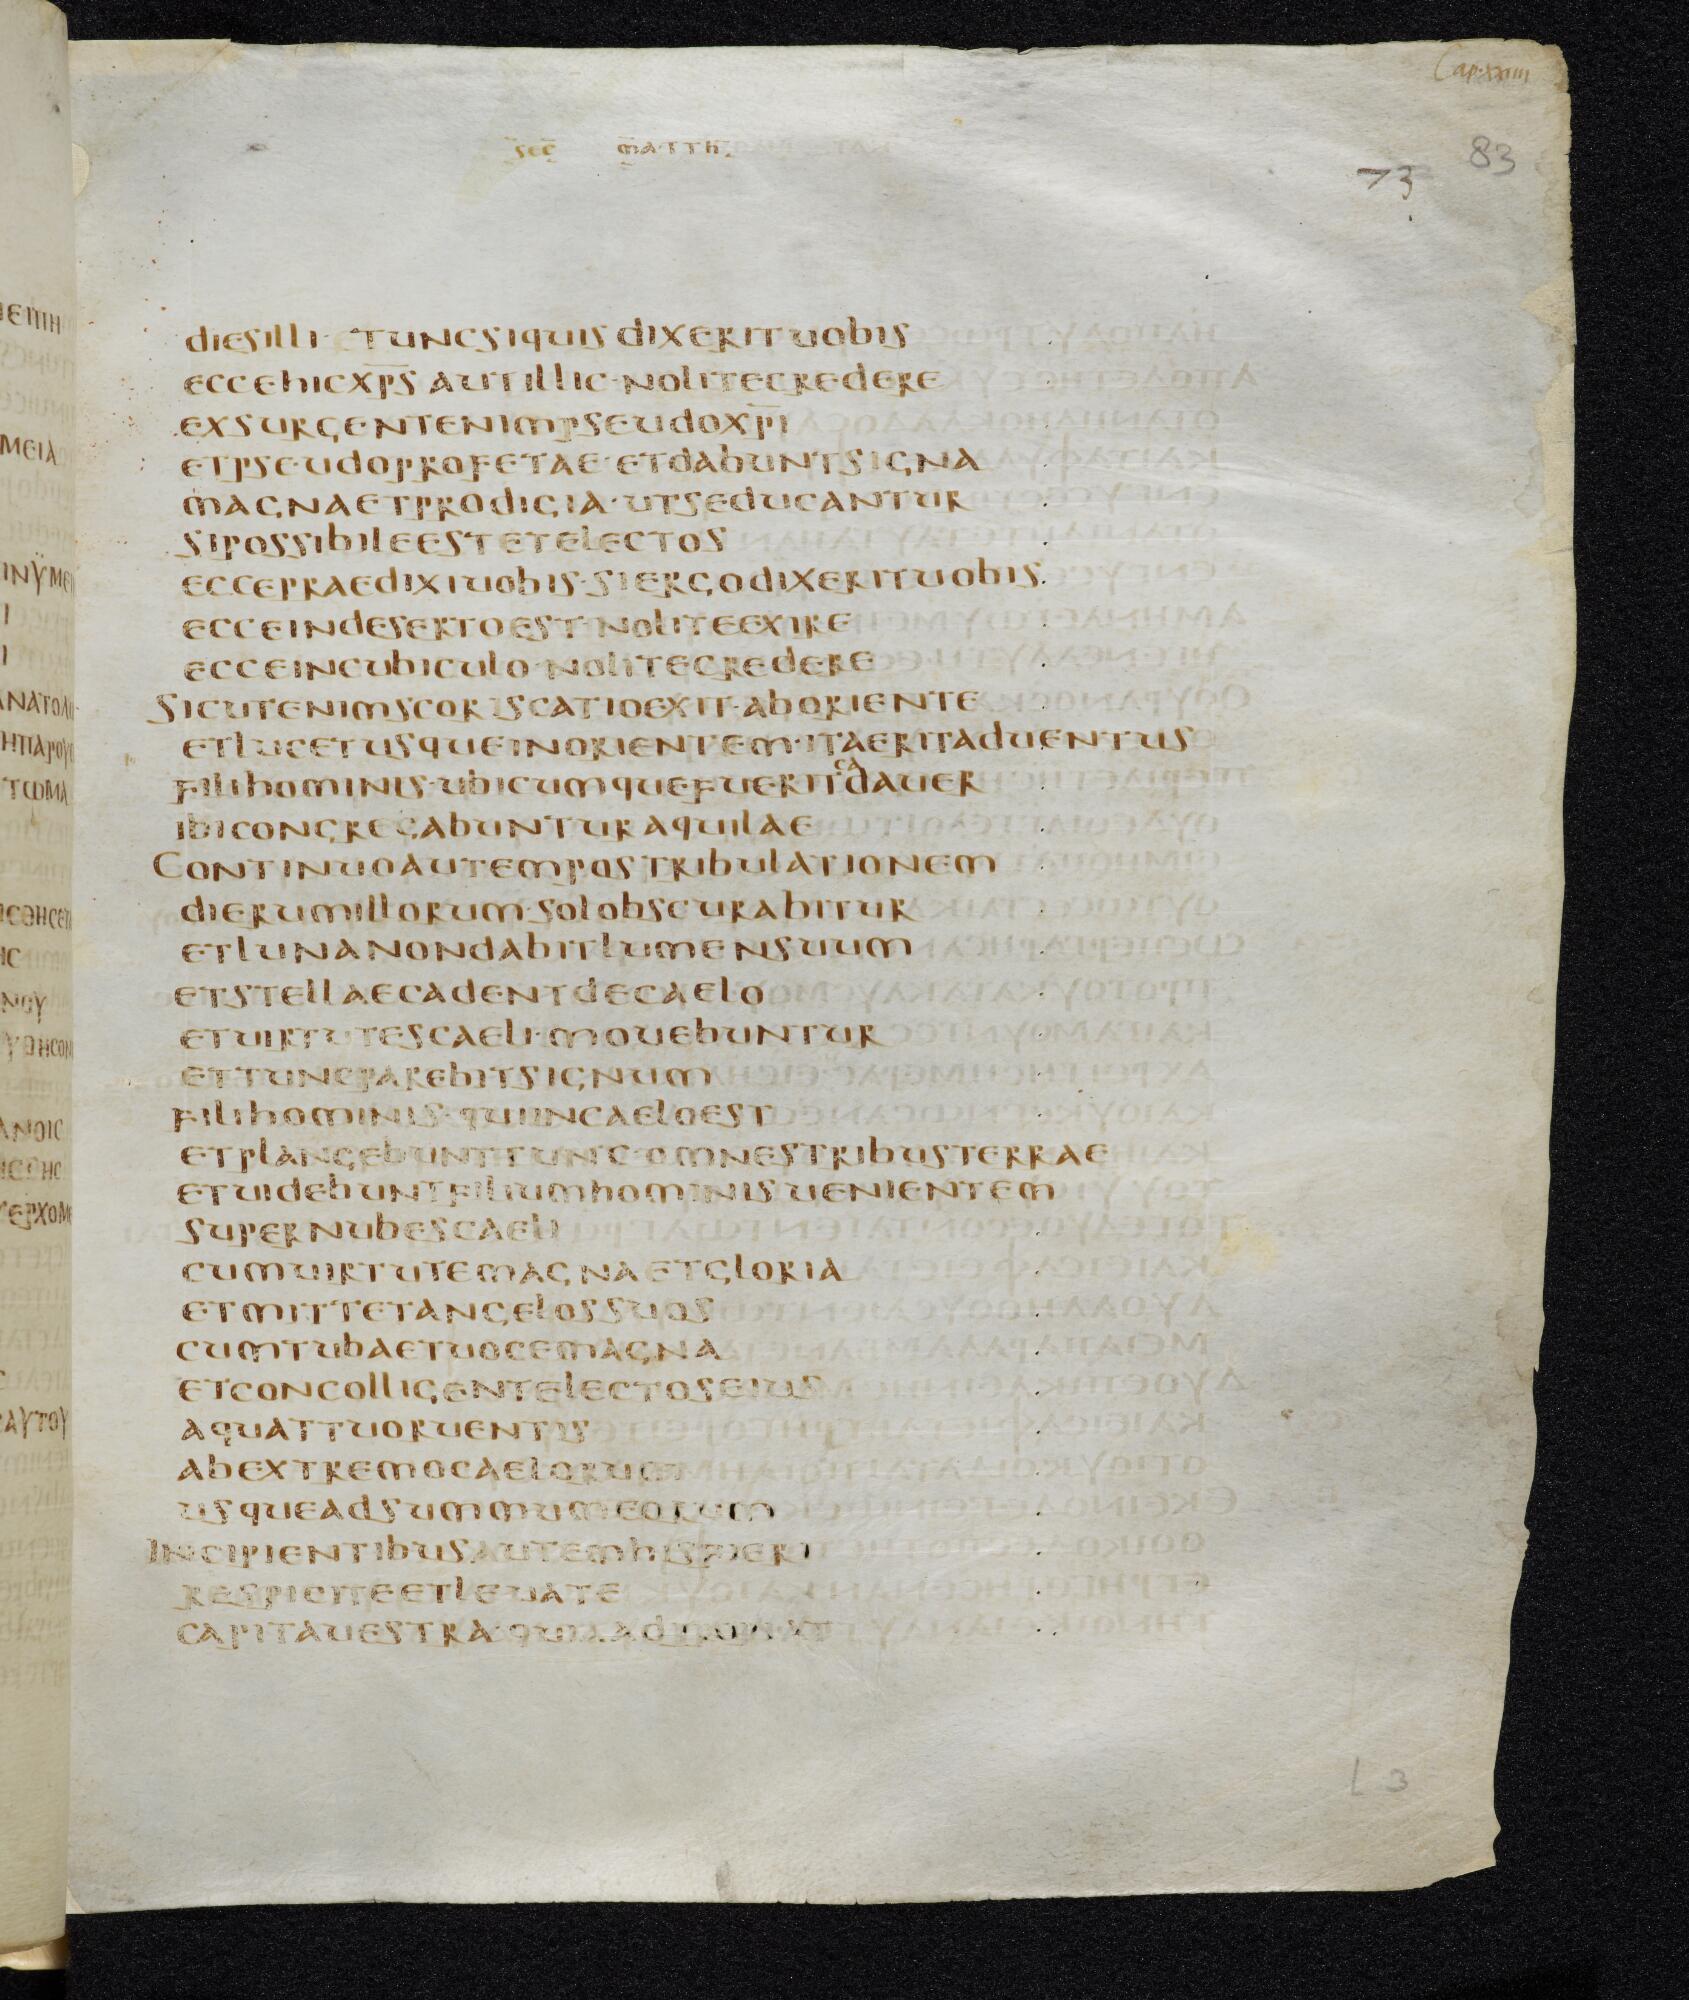 Cap. XXIIII
sec matth
83
73
diesilli · tuncsiquis dixerituobis
eccehicxps autillic · nolitecredere
exsurgentenimpseudoxpi
etpseudoprofetae · etdabuntsigna
magnaetprodigia · utseducantur
sipossibileestetelectos
eccepraedixiuobis · siergodixerituobis
ecceindesertoest · noliteexire
ecceincubiculo · nolitecredere
Sicutenimscoriscatioexit · aboriente
etlucetusqueinorientem · itaeritaduentus
filihominis · ubicumquefueritcadauer
ibicongregabunturaquilae
Continuoautempostribulationem
dierumillorum · solobscurabitur
etlunanondabitlumensuum
etstellaecadentdecaelo
etuirtutescaeli · mouebuntur
ettuncparebitsignum
filihominis · quiincaeloest
etplangebunttunc · omnestribusterrae
etuidebuntfiliumhominisuenientem
supernubescaeli
cumuirtutemagnaetgloria
etmittetangelossuos
cumtubaetuocemagna
etconcolligentelectoseius
aquattuoruentis
abextremocaelorum
usqueadsummumeorum
Incipientibusautemhisfieri
respiciteetleuate
capitauestra · quiaadpropiat
L 3